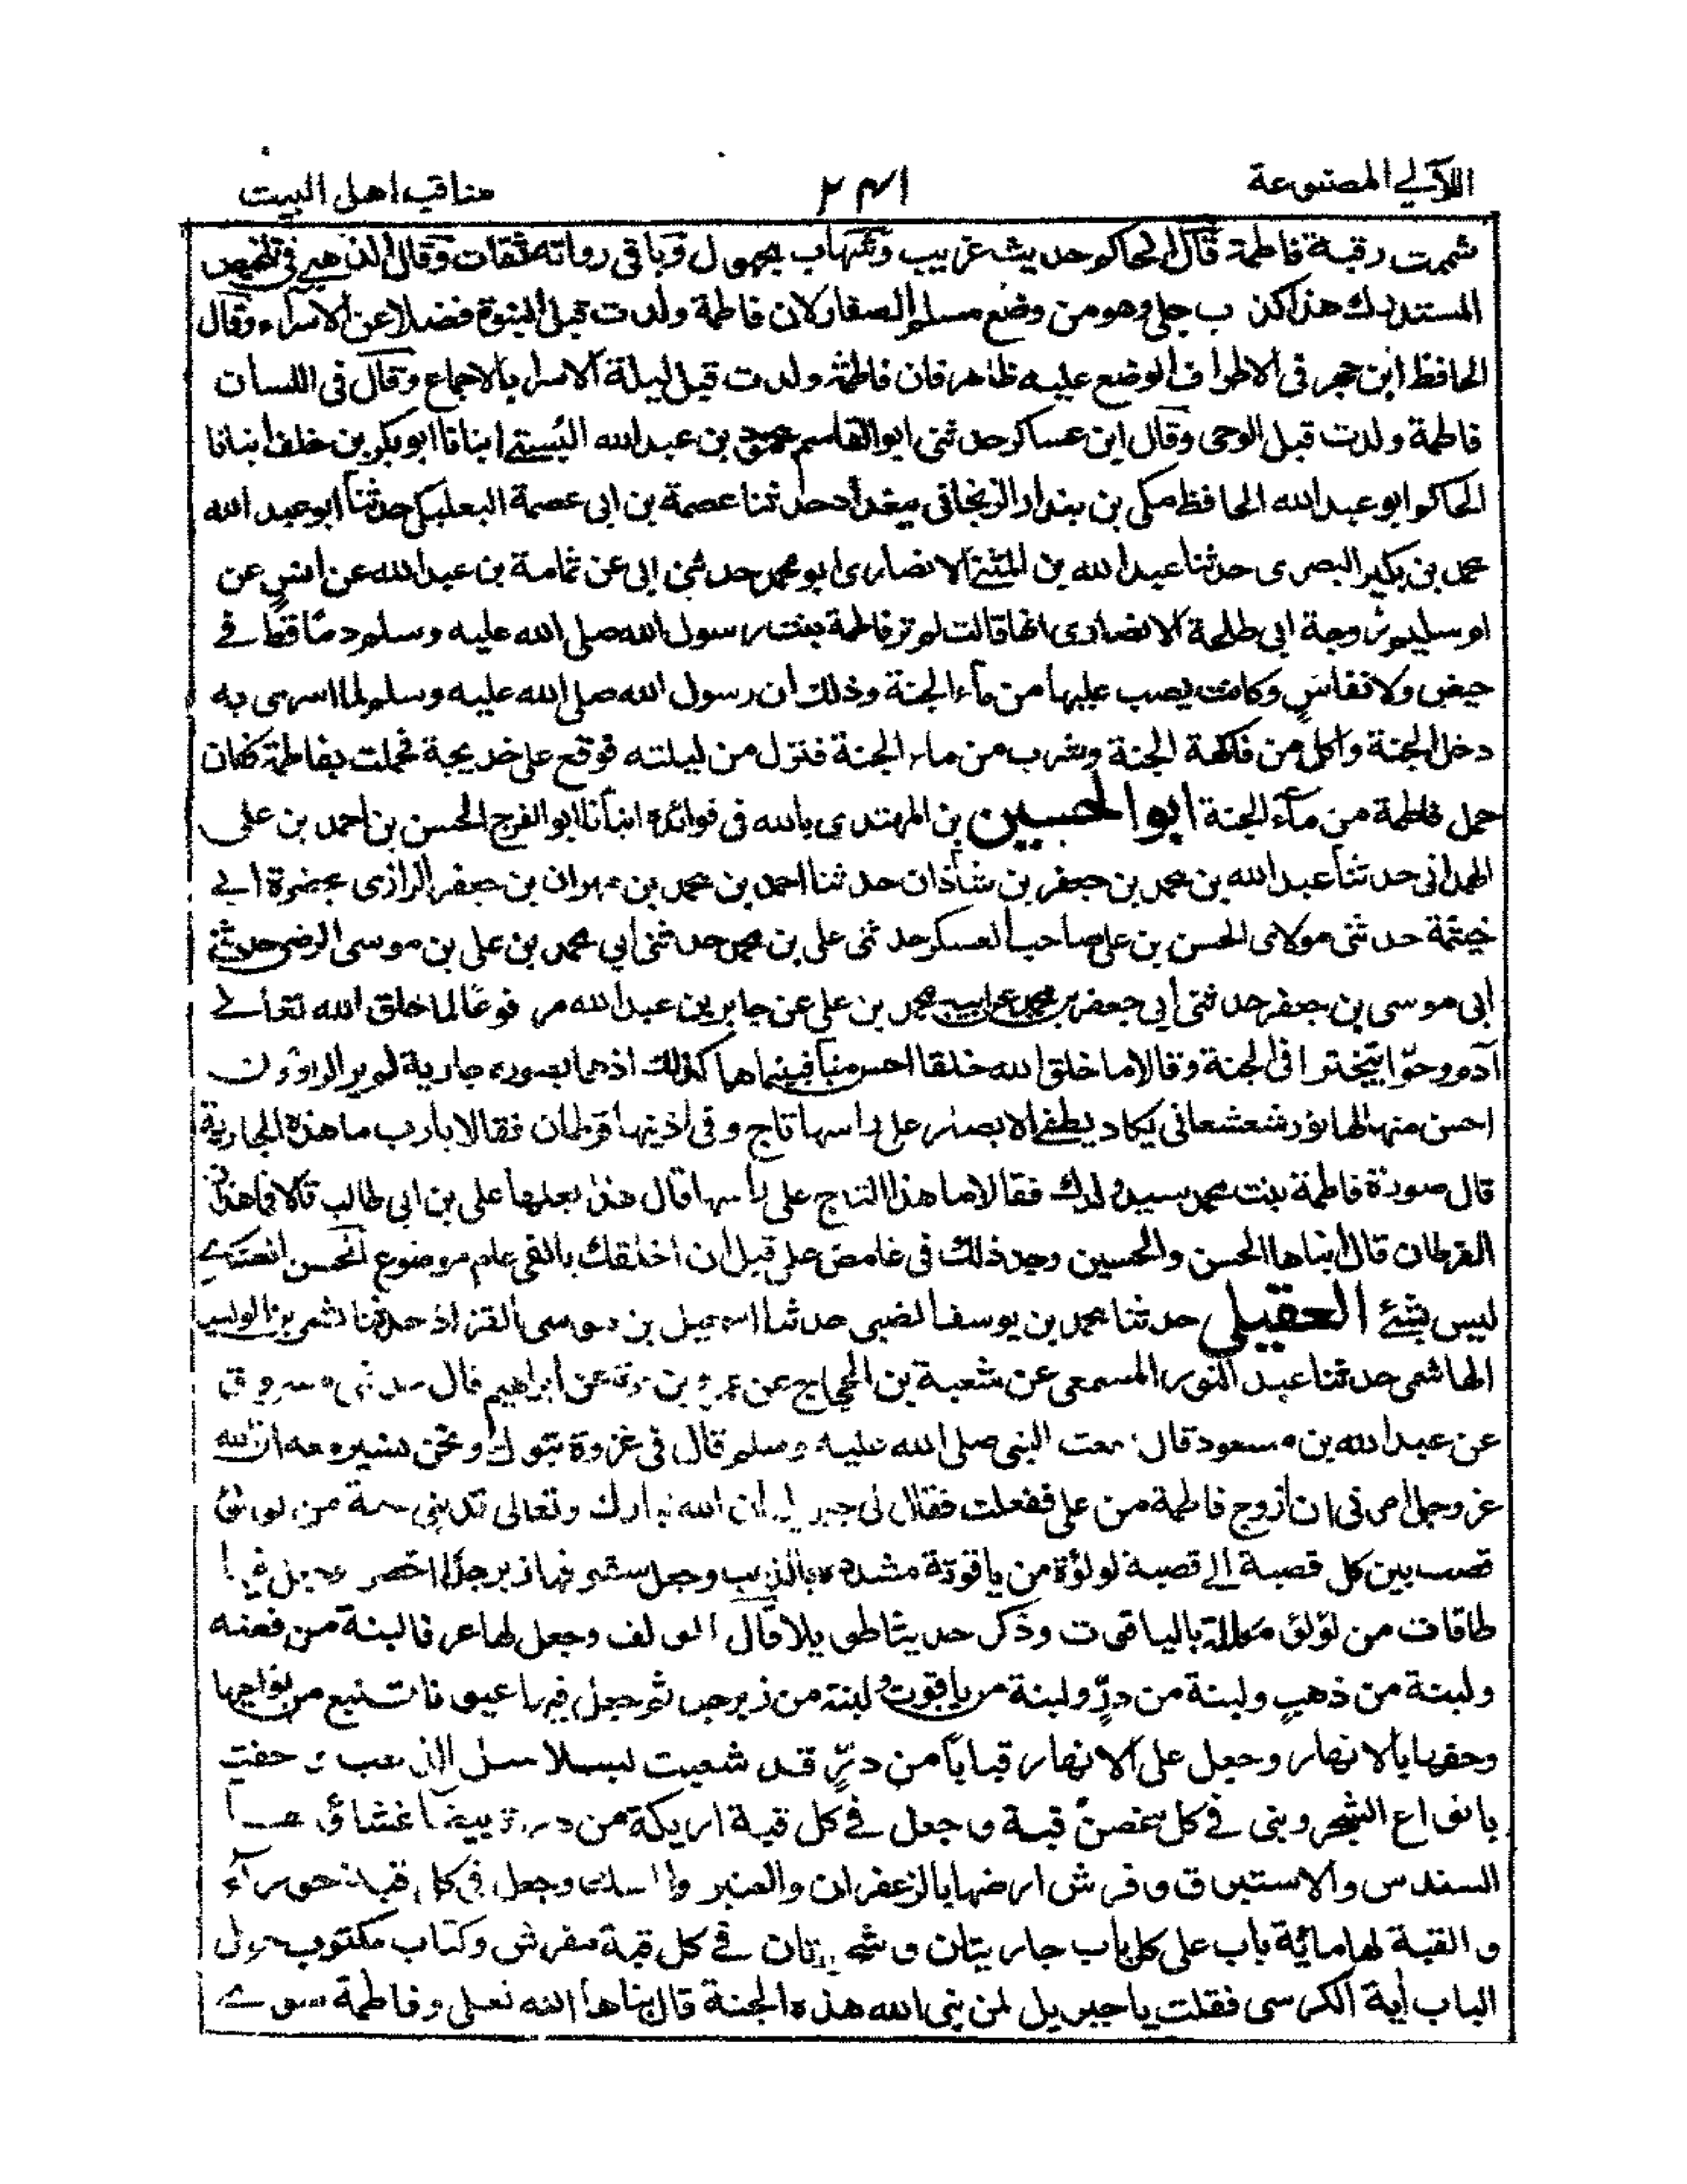 اللآلي المصنوعة
٢٤١
مناقب اهل البيت
شممت رقبة فاطمة قال الحاكم حديث غريب وشهاب مجهول وباقي رواته ثقات وقال الذهبي في تلخيص
المستدرك هذا كذب جلي وهو من وضع مسلم الصفار لان فاطمة ولدت قبل النبوة فضلا عن الاسراء وقال
الحافظ ابن حجر في الاطراف الوضع عليه ظاهر فان فاطمة ولدت قبل ليلة الاسرا بالاجماع وقال في اللسان
فاطمة ولدت قبل الوحي وقال ابن عساكر حدثني ابو القاسم محمود بن عبد الله البستي انبانا ابو بكر بن خلف انبانا
الحاكم ابو عبد الله الحافظ مكي بن بندار الزنجاني ببغداد حدثنا عصمة بن ابي عصمة البعلبكي حدثنا ابو عبد الله
محمد بن بكير البصري حدثنا عبد الله بن المثنى الانصاري ابو محمد حدثني ابي عن ثمامة بن عبد الله عن انس عن
ام سليم زوجة ابي طلحة الانصاري انها قالت لم تر فاطمة بنت رسول الله صلى الله عليه وسلم دما قط في
حيض ولا نفاس وكانت يصب عليها من ماء الجنة وذلك ان رسول الله صلى الله عليه وسلم لما اسرى به
دخل الجنة واكل من فاكهة الجنة وشرب من ماء الجنة فنزل من ليلته فوقع على خديجة فحملت بفاطمة فكان
حمل فاطمة من ماء الجنة ابو الحسين بن المهتدي بالله في فوائده انبأنا ابو الفرج الحسن بن احمد بن علي
الهمداني حدثنا عبد الله بن محمد بن جعفر بن شاذان حدثنا احمد بن محمد بن مهران بن جعفر الرازي بحضرة ابي
خيثمة حدثني مولاي الحسن بن علي صاحب العسكر حدثني علي بن محمد حدثني ابي محمد بن علي بن موسى الرضى حدثني
ابي موسى بن جعفر حدثني ابي جعفر بن محمد عن ابيه محمد بن علي عن جابر بن عبد الله مرفوعا لما خلق الله تعالى
آدم وحوا تبخترا في الجنة وقالا ما خلق الله خلقا احسن منا فبينما هما كذلك اذ هما بصورة جارية لم ير الراؤون
احسن منها لها نور شعشعاني يكاد يطفي الابصار على راسها تاج وفي اذنيها قرطان فقالا يا رب ما هذه الجارية
قال صورة فاطمة بنت محمد سيد ولدك فقالا ما هذا التاج على راسها قال هذا بعلها علي بن ابي طالب قالا فما هذان
القرطان قال ابناها الحسن والحسين وجد ذلك في غامض علمي قبل ان اخلقك بالفي عام موضوع الحسن العسكري
ليس بشئ العقيلي حدثنا محمد بن يوسف الضبي حدثنا اسمعيل بن موسى القزاز حدثنا بشر بن الوليد
الهاشمي حدثنا عبد النور المسمعي عن شعبة بن الحجاج عن عمرو بن مرة عن ابراهيم قال حدثني مسروق
عن عبد الله بن مسعود قال سمعت النبي صلى الله عليه وسلم قال في غزوة تبوك ونحن نسير معه ان الله
عز وجل امرني ان ازوج فاطمة من علي ففعلت فقال لي جبريل ان الله تبارك وتعالى قد بنى جنة من لؤلؤ
قصب بين كل قصبة الى قصبة لولؤة من ياقوتة مشددة بالذهب وجعل سقوفها زبرجدا اخضر وجعل فيها
طاقات من لؤلؤ مكللة بالياقوت وذكر حديثا طويلا قال المولف وجعل لها غرفا لبنة من فضة
ولبنة من ذهب ولبنة من در ولبنة من ياقوت ولبنة من زبرجد ثم جعل فيها عيونا تنبع من نواحيها
وحفها بالانهار وجعل على الانهار قبابا من در قد شعبت بسلاسل الذهب وحفت
بانواع الشجر وبنى في كل غصن قبة وجعل في كل قبة اريكة من درة بيضا غشاؤها
السندس والاستبرق وفرش ارضها بالزعفران والعنبر والمسك وجعل في كل قبة حوراء
والقبة لها مائة باب على كل باب جاريتان وشجرتان في كل قبة مفرش وكتاب مكتوب حول
الباب آية الكرسي فقلت يا جبريل لمن بنى الله هذه الجنة قال بناها الله لعلي وفاطمة سوى